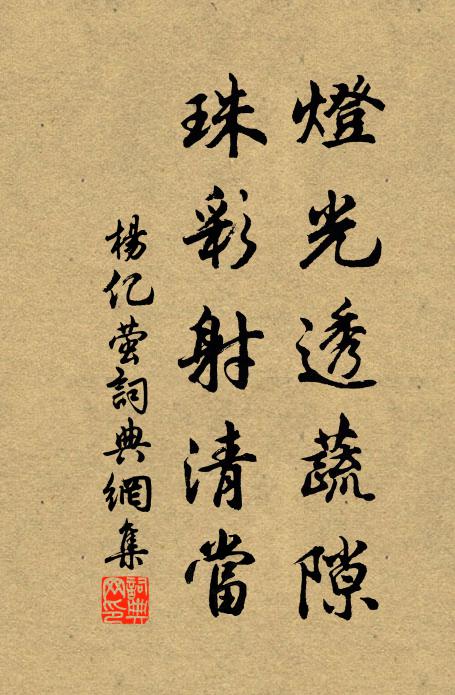 燈光透蔬隙
珠彩射清當
楊亿萤詞典網集
詞典网印